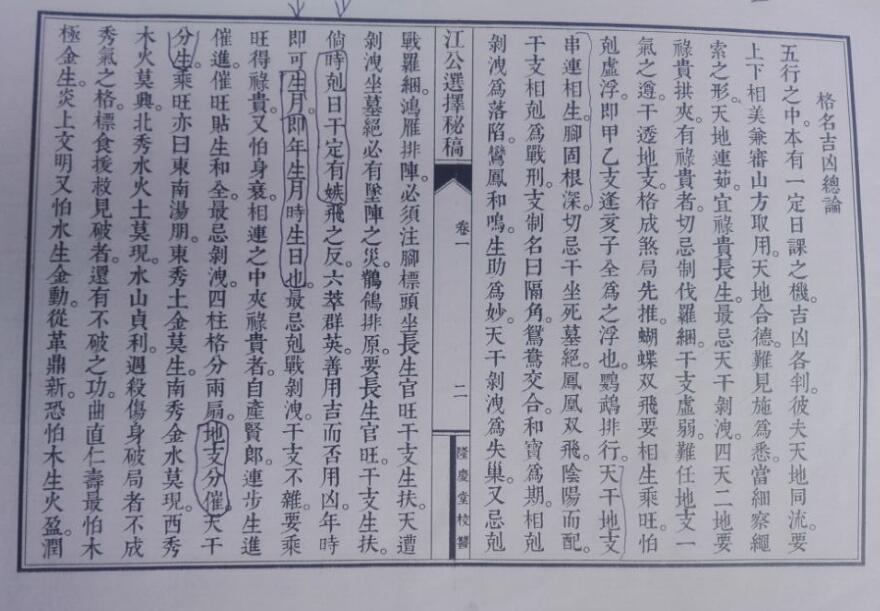 格名吉凶總論
五行之中。本有一定日課之機。吉凶各判。彼夫天地同流。要
上下相美兼審山方取用。天地合德。難見施爲悉。當細察繩
索之形。天地連茹。宜祿貴長生。最忌天干剝洩。四天二地要
祿貴拱夾。有祿貴者。切忌制伐羅綑。干支虛弱。難任地支一
氣之遵。干透地支。格成煞局先推。蝴蝶双飛。要相生乘旺。怕
剋虛浮。即甲乙支逢亥子全爲之浮也。鸚鵡排行。天干地支
串連相生。腳固根深。切忌干坐死墓絕。鳳凰双飛。陰陽而配。
干支相剋爲戰刑。支制名曰隔角。鴛鴦交合。和寶爲期。相剋
剝洩爲落陷。鸞鳳和鳴。生助爲妙。天干剝洩爲失巢。又忌剋
江公選擇秘稿
卷一
二
隆慶堂校讐
戰羅綑。鴻雁排陣。必須注腳標頭坐長生官旺。干支生扶。天遭
剝洩坐墓絕。必有墜陣之災。鶺鴒排原。要長生官旺。干支生扶。
倘時剋日干。定有嫉飛之反。六萃群英。善用吉而否用凶。年時
即可生月。即年生月時生日也。最忌剋戰剝洩。干支不雜。要乘
旺得祿貴。又怕身衰。相連之中夾祿貴者。自產賢郎。連步生進
催進。催旺貼生和全。最忌剝洩。四柱格分兩扇。地支分催。天干
分生。乘旺亦曰東南湯朋。東秀土金莫生。南秀金水莫現。西秀
木火莫興。北秀水火土莫現。水山貞利。遇殺傷身破局者不成
秀氣之格。標食援救見破者。還有不破之功。曲直仁壽最怕木
極金生。炎上文明又怕水生金動。從革鼎新。恐怕木生火盈。潤